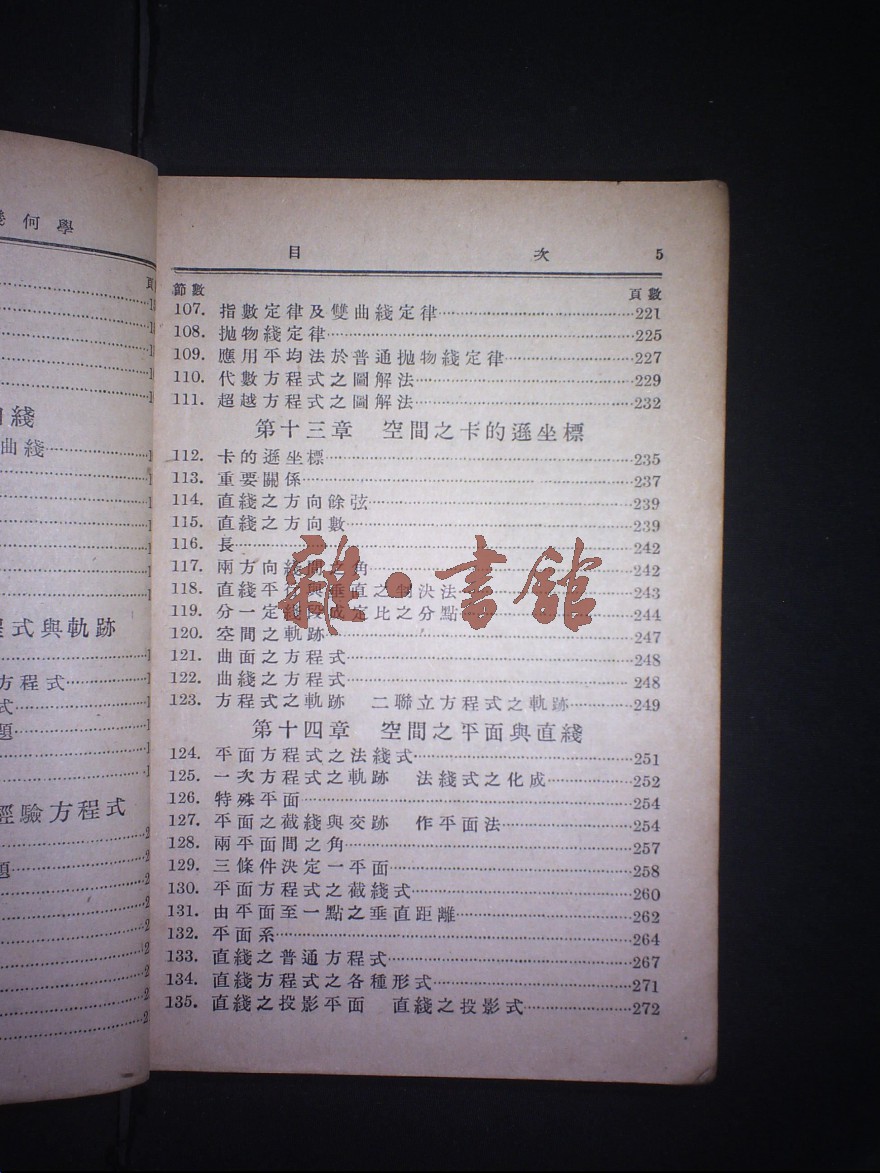 何學
曲綫
程式與軌跡
方程式
式
題
經驗方程式
題
目 次 5
節數 頁數
107. 指數定律及雙曲綫定律 221
108. 拋物綫定律 225
109. 應用平均法於普通拋物綫定律 227
110. 代數方程式之圖解法 229
111. 超越方程式之圖解法 232
第十三章 空間之卡的遜坐標
112. 卡的遜坐標 235
113. 重要關係 237
114. 直綫之方向餘弦 239
115. 直綫之方向數 239
116. 長 242
117. 兩方向綫間之角 242
118. 直綫平行與垂直之判決法 243
119. 分一定綫段成定比之分點 244
120. 空間之軌跡 247
121. 曲面之方程式 248
122. 曲綫之方程式 248
123. 方程式之軌跡 二聯立方程式之軌跡 249
第十四章 空間之平面與直綫
124. 平面方程式之法綫式 251
125. 一次方程式之軌跡 法綫式之化成 252
126. 特殊平面 254
127. 平面之截綫與交跡 作平面法 254
128. 兩平面間之角 257
129. 三條件決定一平面 258
130. 平面方程式之截綫式 260
131. 由平面至一點之垂直距離 262
132. 平面系 264
133. 直綫之普通方程式 267
134. 直綫方程式之各種形式 271
135. 直綫之投影平面 直綫之投影式 272
雜·書館